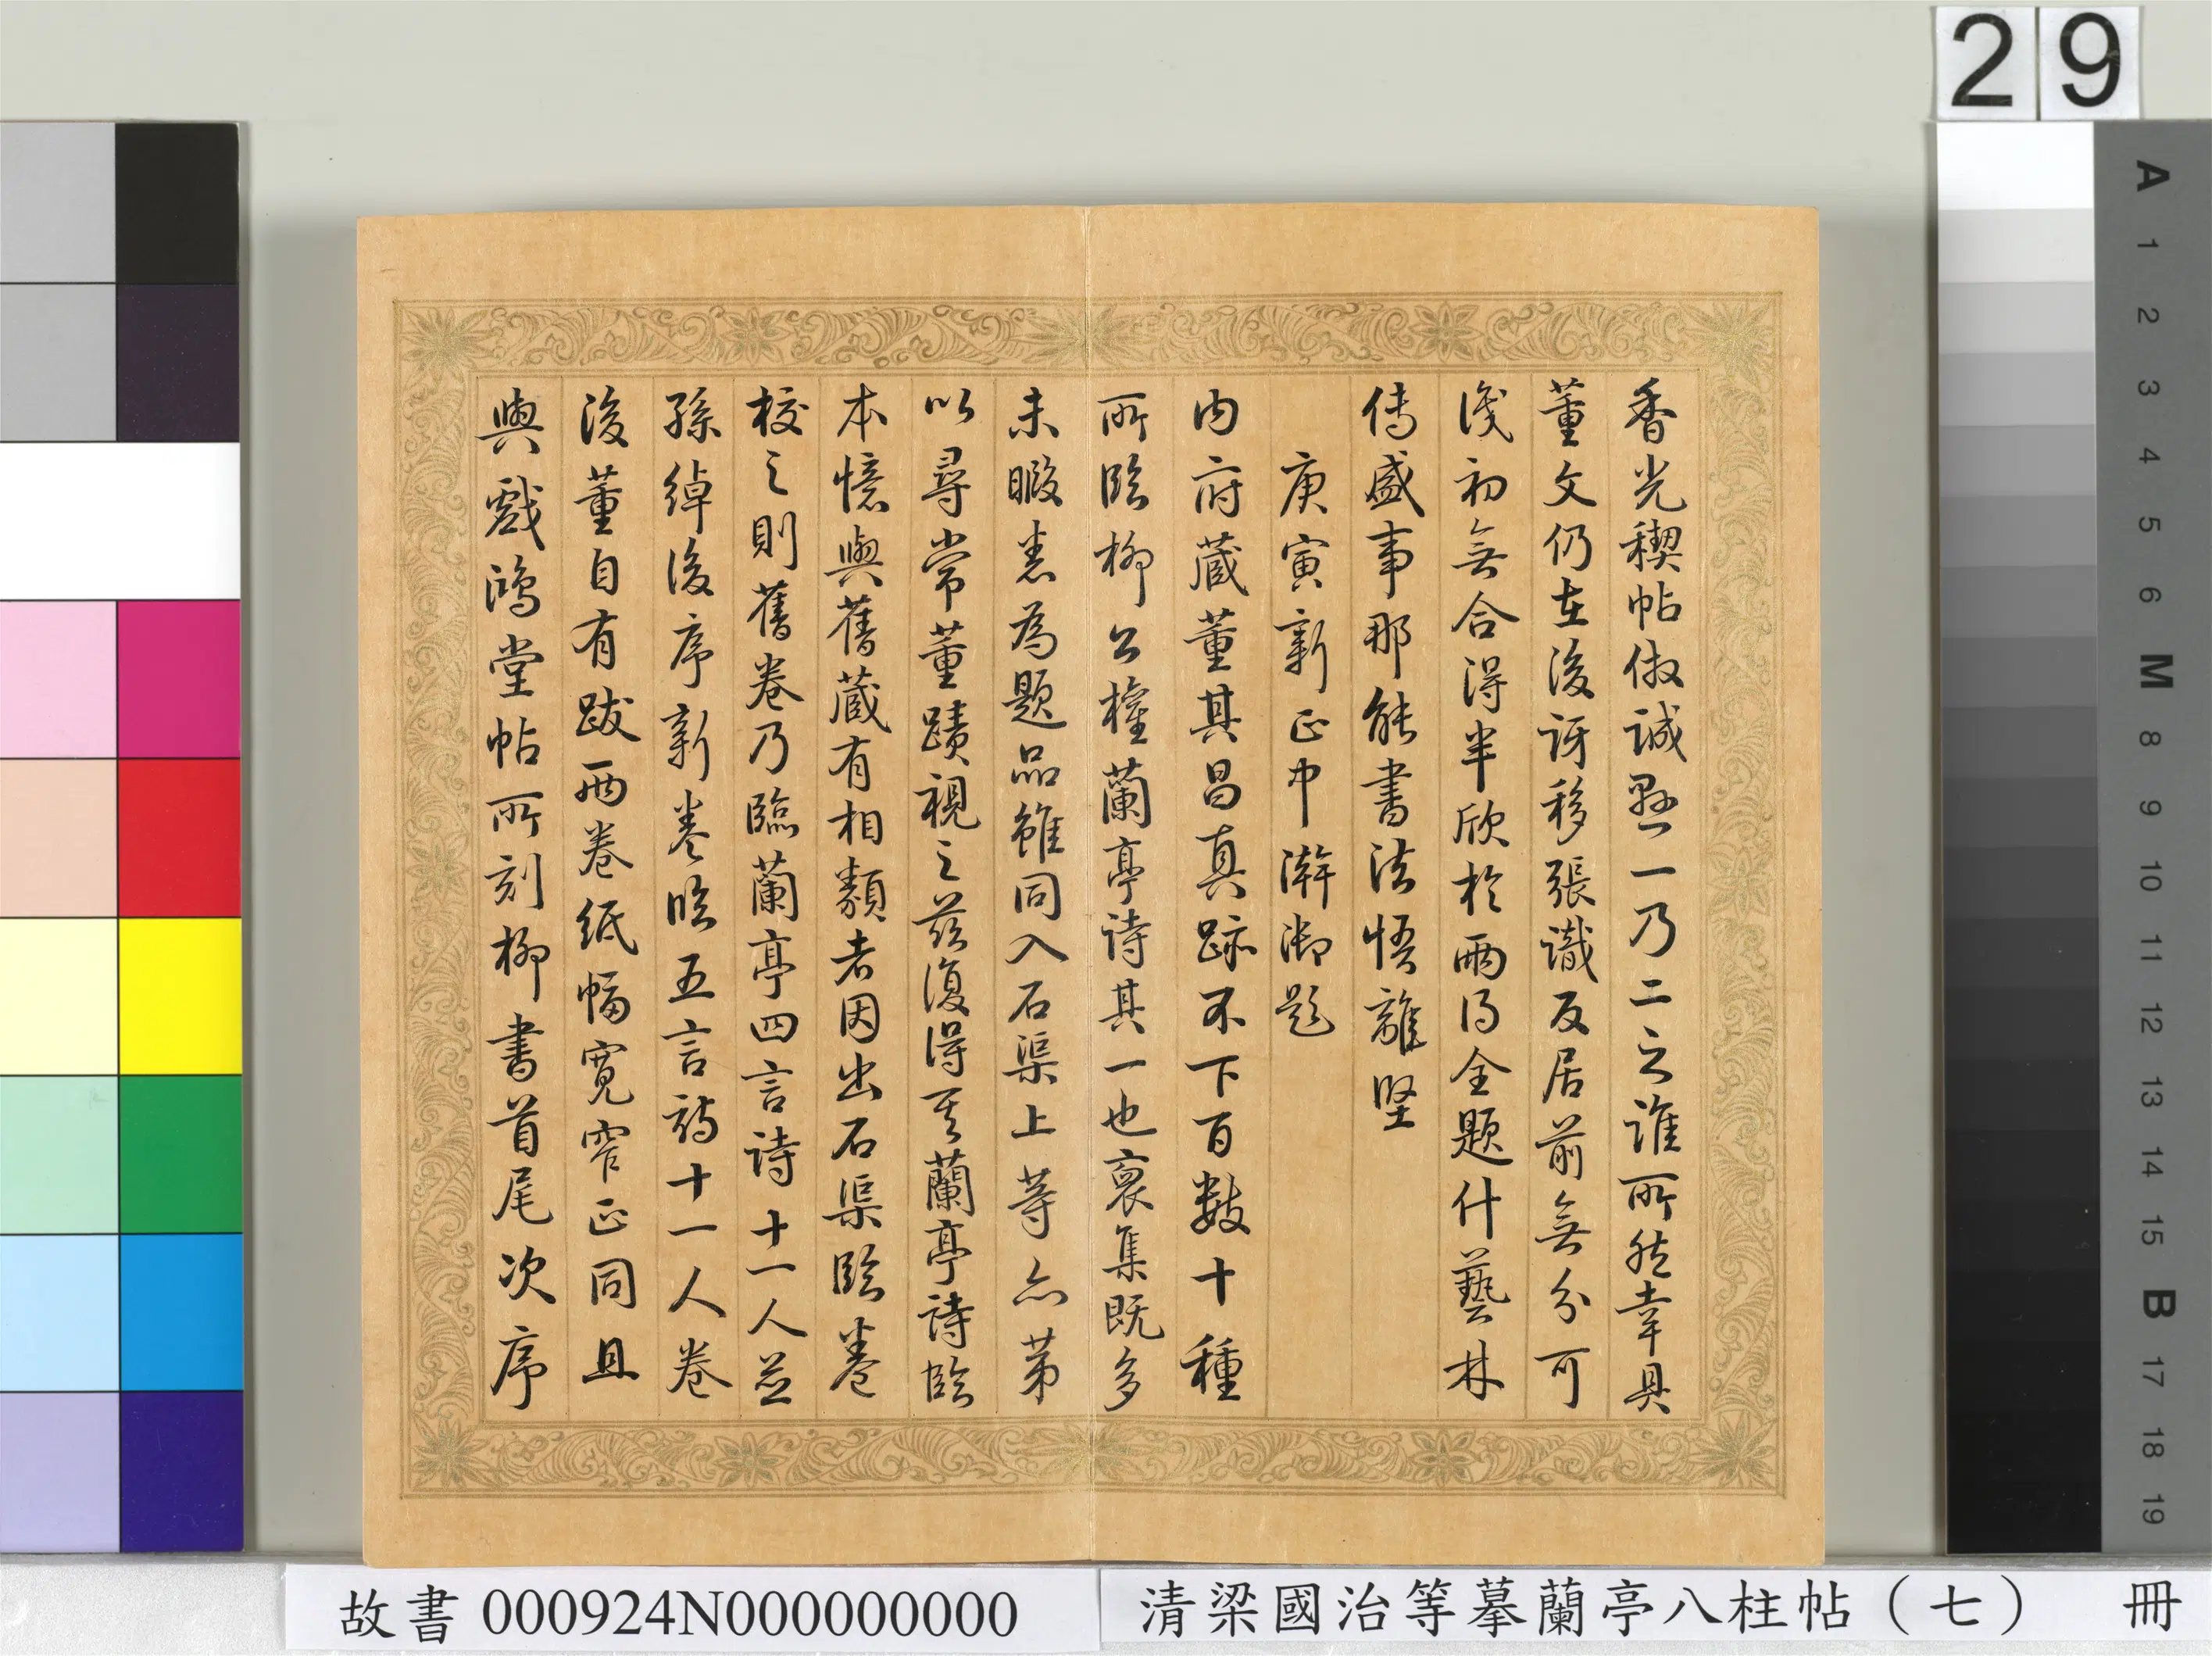 29
香光稧帖倣誠懸一乃二之誰所然幸具
董文仍在後訝移張識反居前無分可
淺初無合得半欣於兩得全題什藝林
傳盛事那能書法悟離堅
庚寅新正中澣御題
內府藏董其昌真跡不下百數十種
所臨柳公權蘭亭詩其一也裒集既多
未暇悉為題品雖同入石渠上等亦第
以尋常董蹟視之茲復得其蘭亭詩臨
本憶與舊藏有相類者因出石渠臨卷
校之則舊卷乃臨蘭亭四言詩十一人並
孫綽後序新卷臨五言詩十一人卷
後董自有跋兩卷紙幅寬窄正同且
與戲鴻堂帖所刻柳書首尾次序
A
1
2
3
4
5
6
M
8
9
10
11
12
13
14
15
B
17
18
19
故書 000924N000000000
清梁國治等摹蘭亭八柱帖（七） 冊